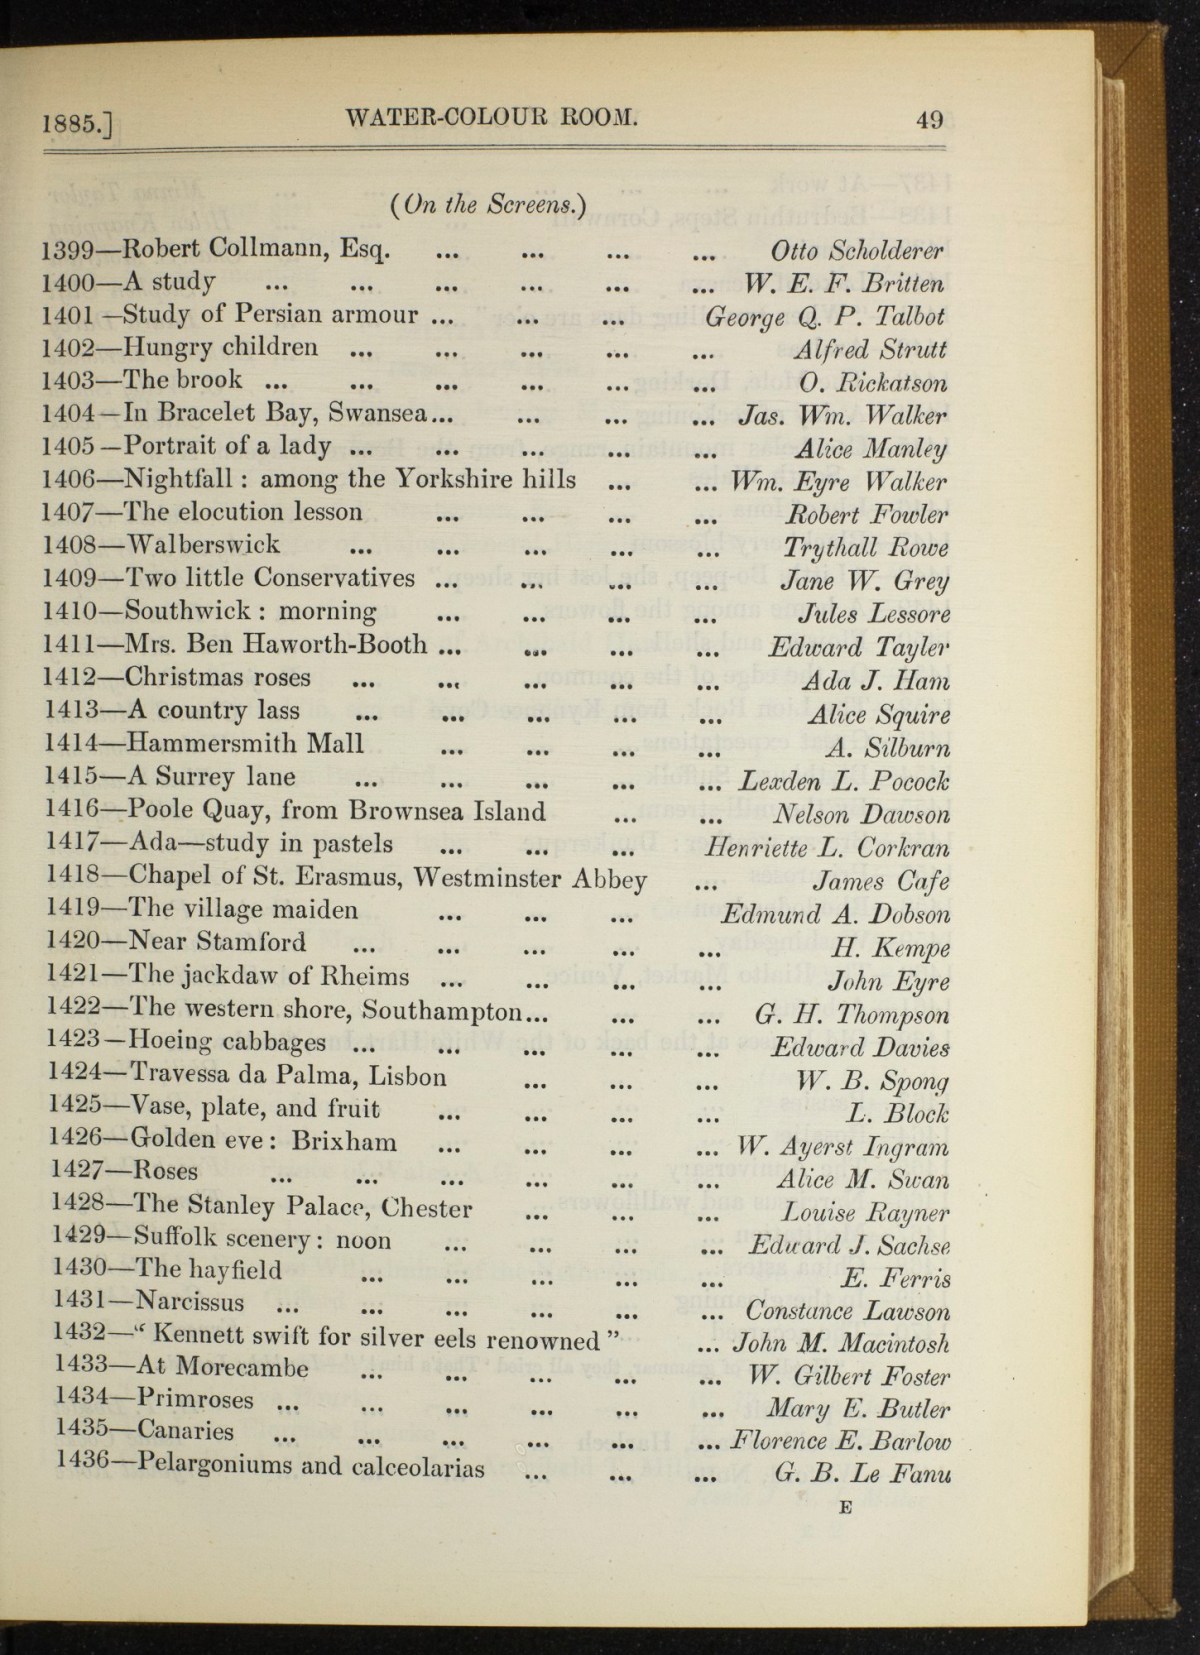 1885.] WATER-COLOUR ROOM. 49
(On the Screens.)
1399—Robert Collmann, Esq. ... ... ... ... Otto Scholderer
1400—A study ... ... ... ... ... ... W. E. F. Britten
1401—Study of Persian armour ... ... ... George Q. P. Talbot
1402—Hungry children ... ... ... ... ... Alfred Strutt
1403—The brook ... ... ... ... ... ... O. Rickatson
1404—In Bracelet Bay, Swansea... ... ... ... Jas. Wm. Walker
1405—Portrait of a lady ... ... ... ... ... Alice Manley
1406—Nightfall : among the Yorkshire hills ... ... Wm. Eyre Walker
1407—The elocution lesson ... ... ... ... Robert Fowler
1408—Walberswick ... ... ... ... ... Trythall Rowe
1409—Two little Conservatives ... ... ... ... Jane W. Grey
1410—Southwick : morning ... ... ... ... Jules Lessore
1411—Mrs. Ben Haworth-Booth ... ... ... ... Edward Tayler
1412—Christmas roses ... ... ... ... ... Ada J. Ham
1413—A country lass ... ... ... ... ... Alice Squire
1414—Hammersmith Mall ... ... ... ... A. Silburn
1415—A Surrey lane ... ... ... ... ... Lexden L. Pocock
1416—Poole Quay, from Brownsea Island ... ... Nelson Dawson
1417—Ada—study in pastels ... ... ... Henriette L. Corkran
1418—Chapel of St. Erasmus, Westminster Abbey ... James Cafe
1419—The village maiden ... ... ... Edmund A. Dobson
1420—Near Stamford ... ... ... ... ... H. Kempe
1421—The jackdaw of Rheims ... ... ... ... John Eyre
1422—The western shore, Southampton... ... ... G. H. Thompson
1423—Hoeing cabbages ... ... ... ... ... Edward Davies
1424—Travessa da Palma, Lisbon ... ... ... W. B. Spong
1425—Vase, plate, and fruit ... ... ... ... L. Block
1426—Golden eve : Brixham ... ... ... ... W. Ayerst Ingram
1427—Roses ... ... ... ... ... ... Alice M. Swan
1428—The Stanley Palace, Chester ... ... ... Louise Rayner
1429—Suffolk scenery : noon ... ... ... ... Edward J. Sachse
1430—The hayfield ... ... ... ... ... E. Ferris
1431—Narcissus ... ... ... ... ... ... Constance Lawson
1432—“ Kennett swift for silver eels renowned ” ... John M. Macintosh
1433—At Morecambe ... ... ... ... ... W. Gilbert Foster
1434—Primroses ... ... ... ... ... ... Mary E. Butler
1435—Canaries ... ... ... ... ... ... Florence E. Barlow
1436—Pelargoniums and calceolarias ... ... ... G. B. Le Fanu
E